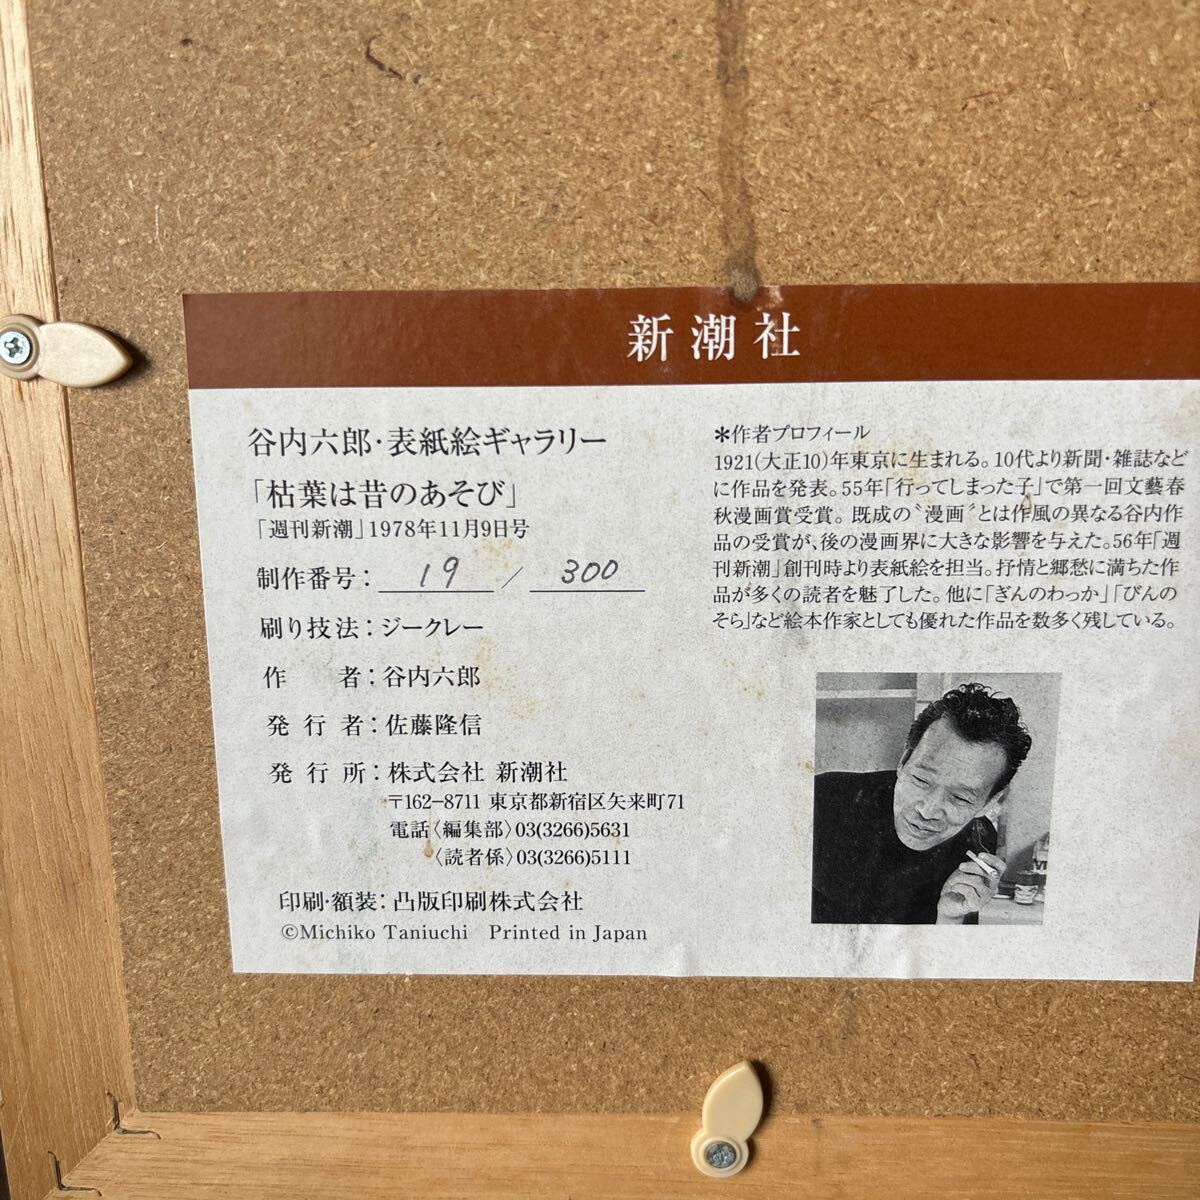 新潮社
谷内六郎・表紙絵ギャラリー
「枯葉は昔のあそび」
「週刊新潮」1978年11月9日号
制作番号： 19 / 300
刷り技法：ジークレー
作　者：谷内六郎
発行者：佐藤隆信
発行所：株式会社 新潮社
〒162-8711 東京都新宿区矢来町71
電話〈編集部〉03(3266)5631
〈読者係〉03(3266)5111
印刷・額装：凸版印刷株式会社
©Michiko Taniuchi Printed in Japan
＊作者プロフィール
1921(大正10)年東京に生まれる。10代より新聞・雑誌など
に作品を発表。55年「行ってしまった子」で第一回文藝春
秋漫画賞受賞。既成の〝漫画〟とは作風の異なる谷内作
品の受賞が、後の漫画界に大きな影響を与えた。56年「週
刊新潮」創刊時より表紙絵を担当。抒情と郷愁に満ちた作
品が多くの読者を魅了した。他に「ぎんのわっか」「びんの
そら」など絵本作家としても優れた作品を数多く残している。